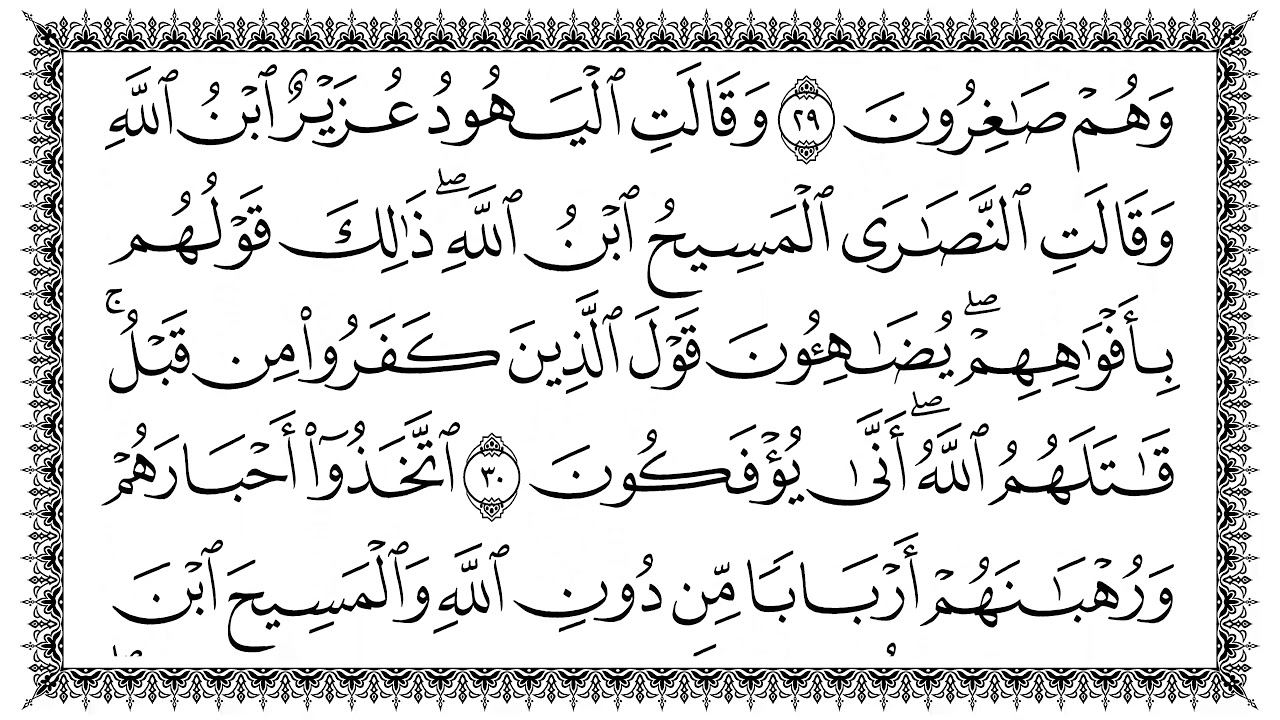 وَهُمْ صَٰغِرُونَ ٢٩ وَقَالَتِ ٱلْيَهُودُ عُزَيْرٌ ٱبْنُ ٱللَّهِ
وَقَالَتِ ٱلنَّصَٰرَى ٱلْمَسِيحُ ٱبْنُ ٱللَّهِۖ ذَٰلِكَ قَوْلُهُم
بِأَفْوَٰهِهِمْۖ يُضَٰهِـُٔونَ قَوْلَ ٱلَّذِينَ كَفَرُوا۟ مِن قَبْلُۚ
قَٰتَلَهُمُ ٱللَّهُۖ أَنَّىٰ يُؤْفَكُونَ ٣٠ ٱتَّخَذُوٓا۟ أَحْبَارَهُمْ
وَرُهْبَٰنَهُمْ أَرْبَابًا مِّن دُونِ ٱللَّهِ وَٱلْمَسِيحَ ٱبْنَ